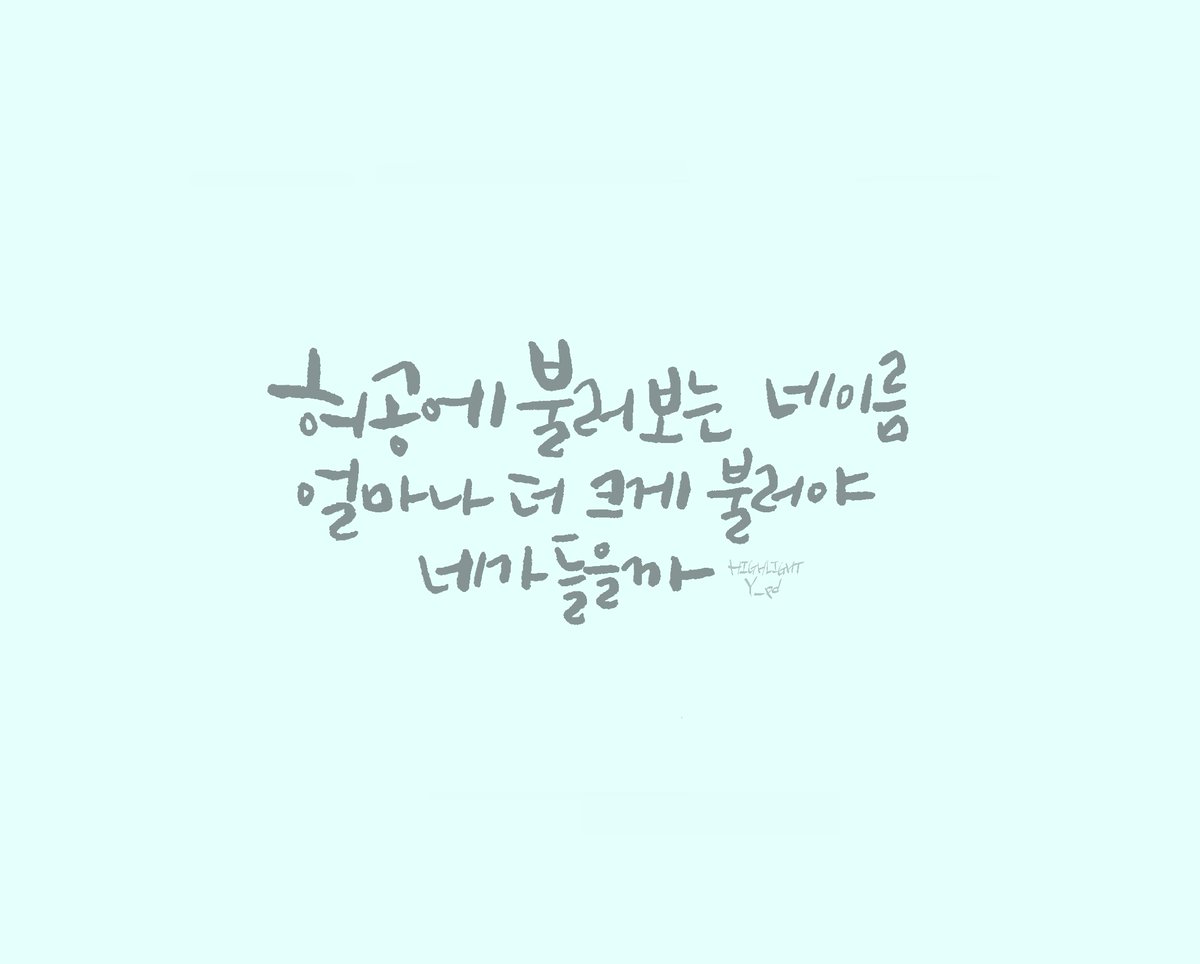 허공에 불러보는 네이름
얼마나 더 크게 불러야
네가들을까
HIGHLIGHT
Y_pd